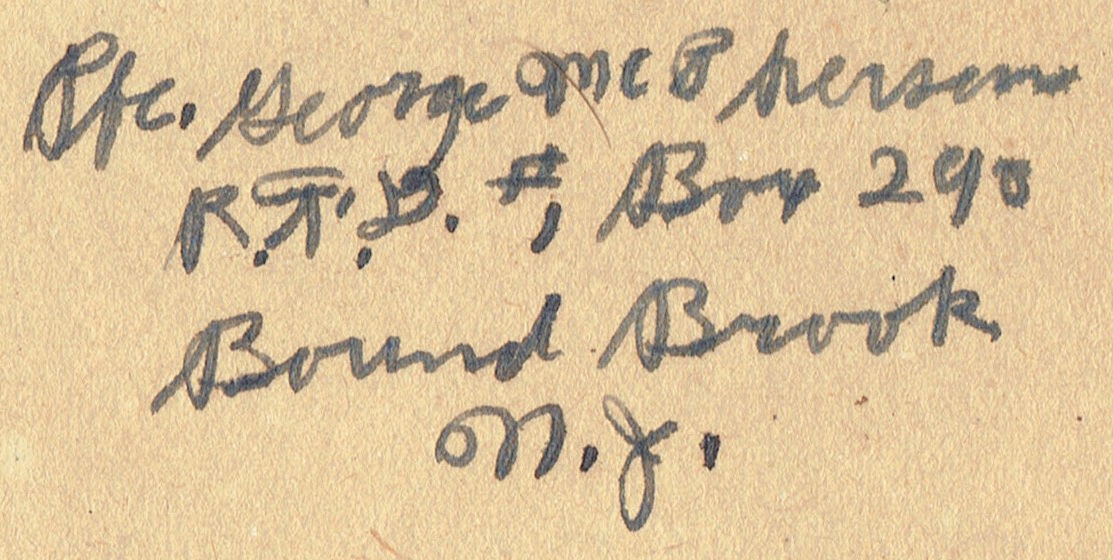 Pfc. George McPherson
R.F.D. #1 Box 290
Bound Brook
N.J.